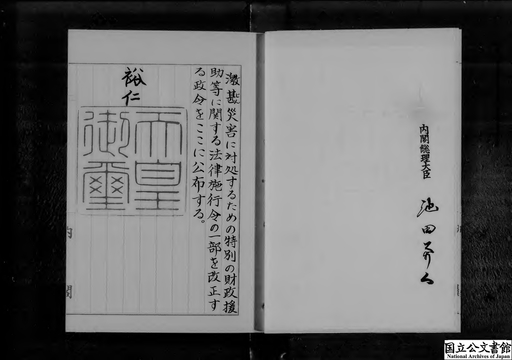 内閣総理大臣
池田勇人
激甚災害に対処するための特別の財政援
助等に関する法律施行令の一部を改正す
る政令をここに公布する。
裕仁
天皇
御璽
内閣
国立公文書館
National Archives of Japan